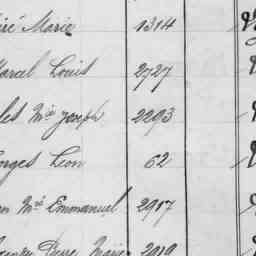 iré Marie 1314
Marcel Louis 2727
les Mie Joseph 2293
orges Leon 62
n Mie Emmanuel 2917
Pierre Marie 2919